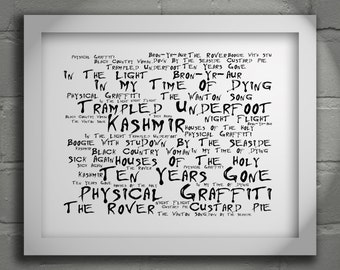 PHYSICAL GRAFFITI BRON-YR-AUR THE ROVER BOOGIE WITH STU
BLACK COUNTRY WOMAN DOWN BY THE SEASIDE CUSTARD PIE
TRAMPLED UNDERFOOT TEN YEARS GONE
IN THE LIGHT BRON-YR-AUR
IN MY TIME OF DYING
PHYSICAL GRAFFITI THE WANTON SONG
TRAMPLED UNDERFOOT
KASHMIR NIGHT FLIGHT
HOUSES OF THE HOLY
IN THE LIGHT TRAMPLED UNDERFOOT PHYSICAL GRAFFITI
BOOGIE WITH STU DOWN BY THE SEASIDE
BLACK COUNTRY WOMAN IN MY TIME OF DYING
SICK AGAIN HOUSES OF THE HOLY
KASHMIR TEN YEARS GONE
PHYSICAL GRAFFITI
THE ROVER NIGHT FLIGHT CUSTARD PIE
THE WANTON SONG DOWN BY THE SEASIDE